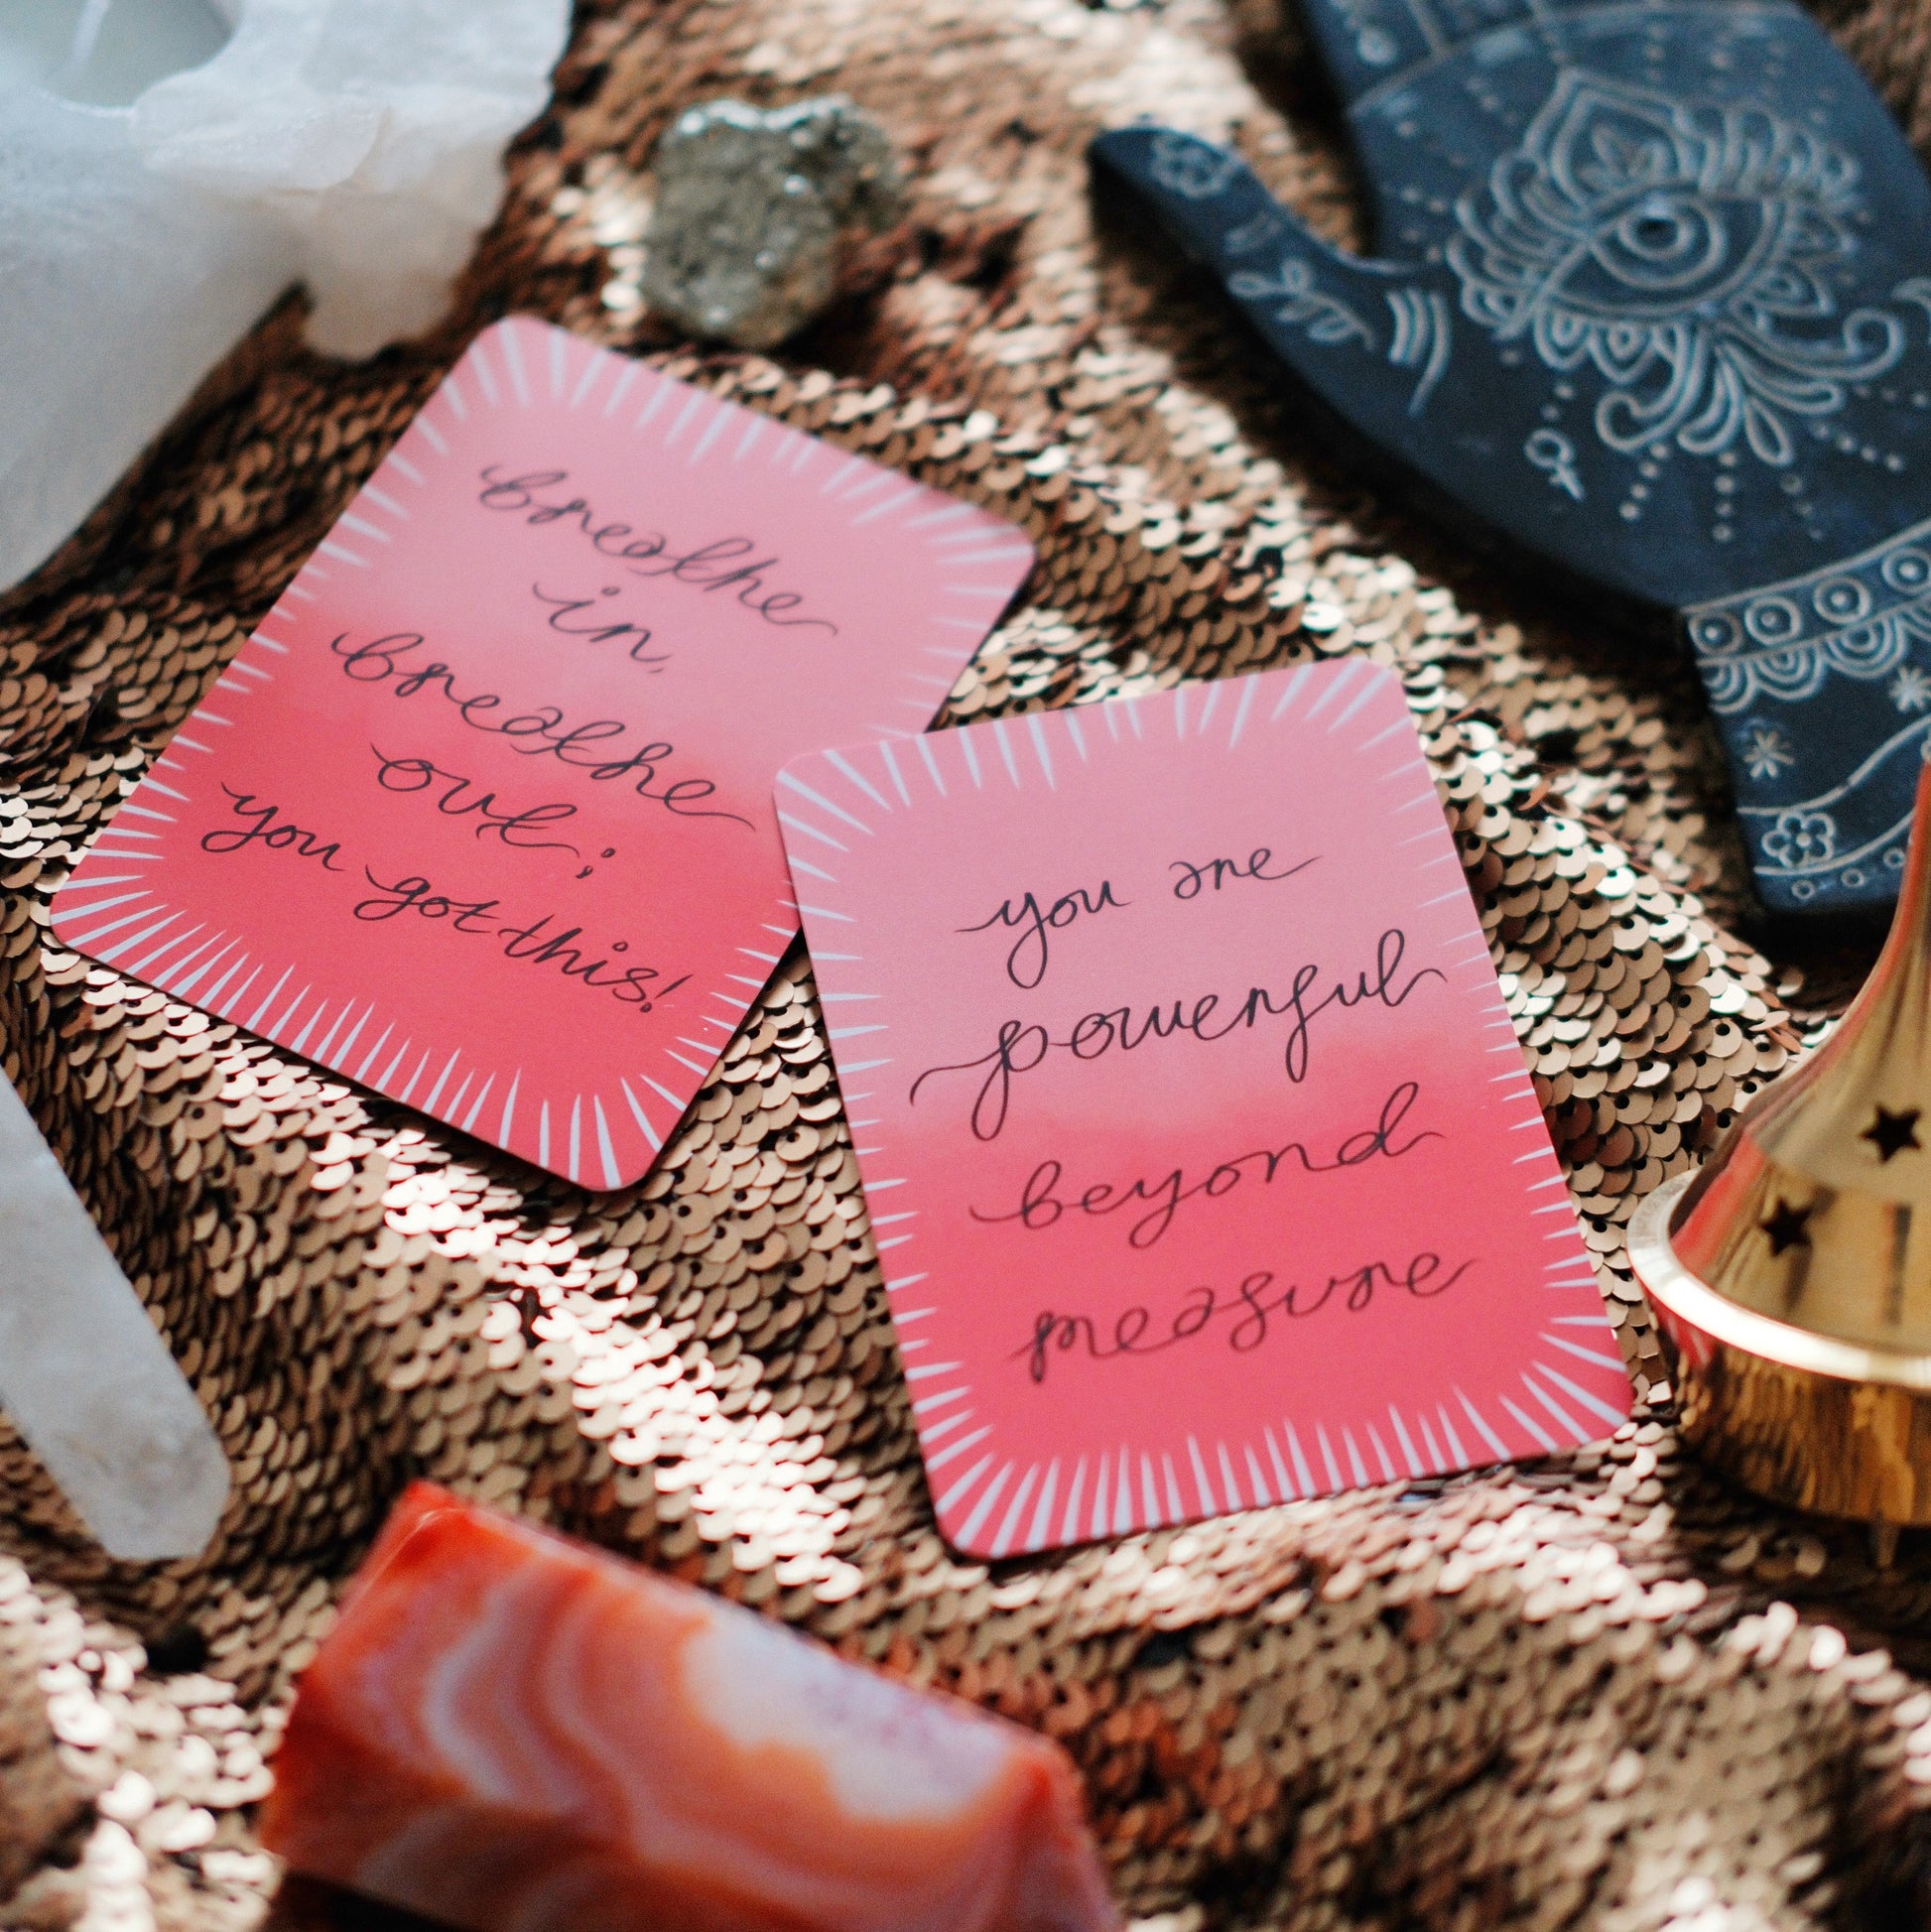 breathe
in,
breathe
out;
you got this!
you are
powerful
beyond
measure